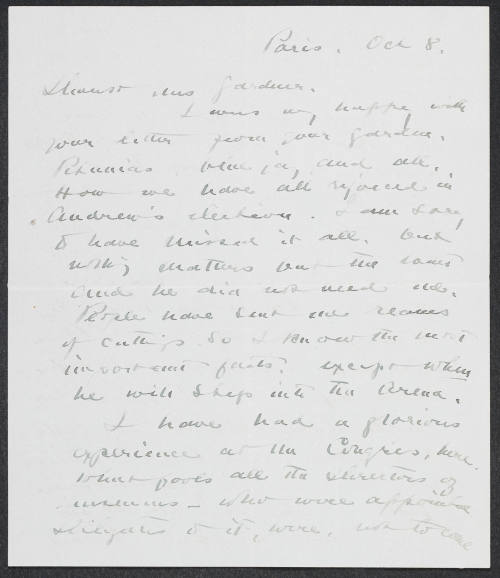 Paris. Oct 8.
Dearest Mrs Gardner.
I was so happy with
your letter from your garden.
Petunias and all.
How we have all rejoiced in
Andrew's election. I am sorry
to have missed it all. But
nothing matters but the result
and he did not need me.
People have sent me reams
of cuttings so I know the most
important facts. except when
he will step into the Arena.
I have had a glorious
experience at the Congress, here.
What fools all the directors of
museums - who were appointed
delegates to it, were, not to come